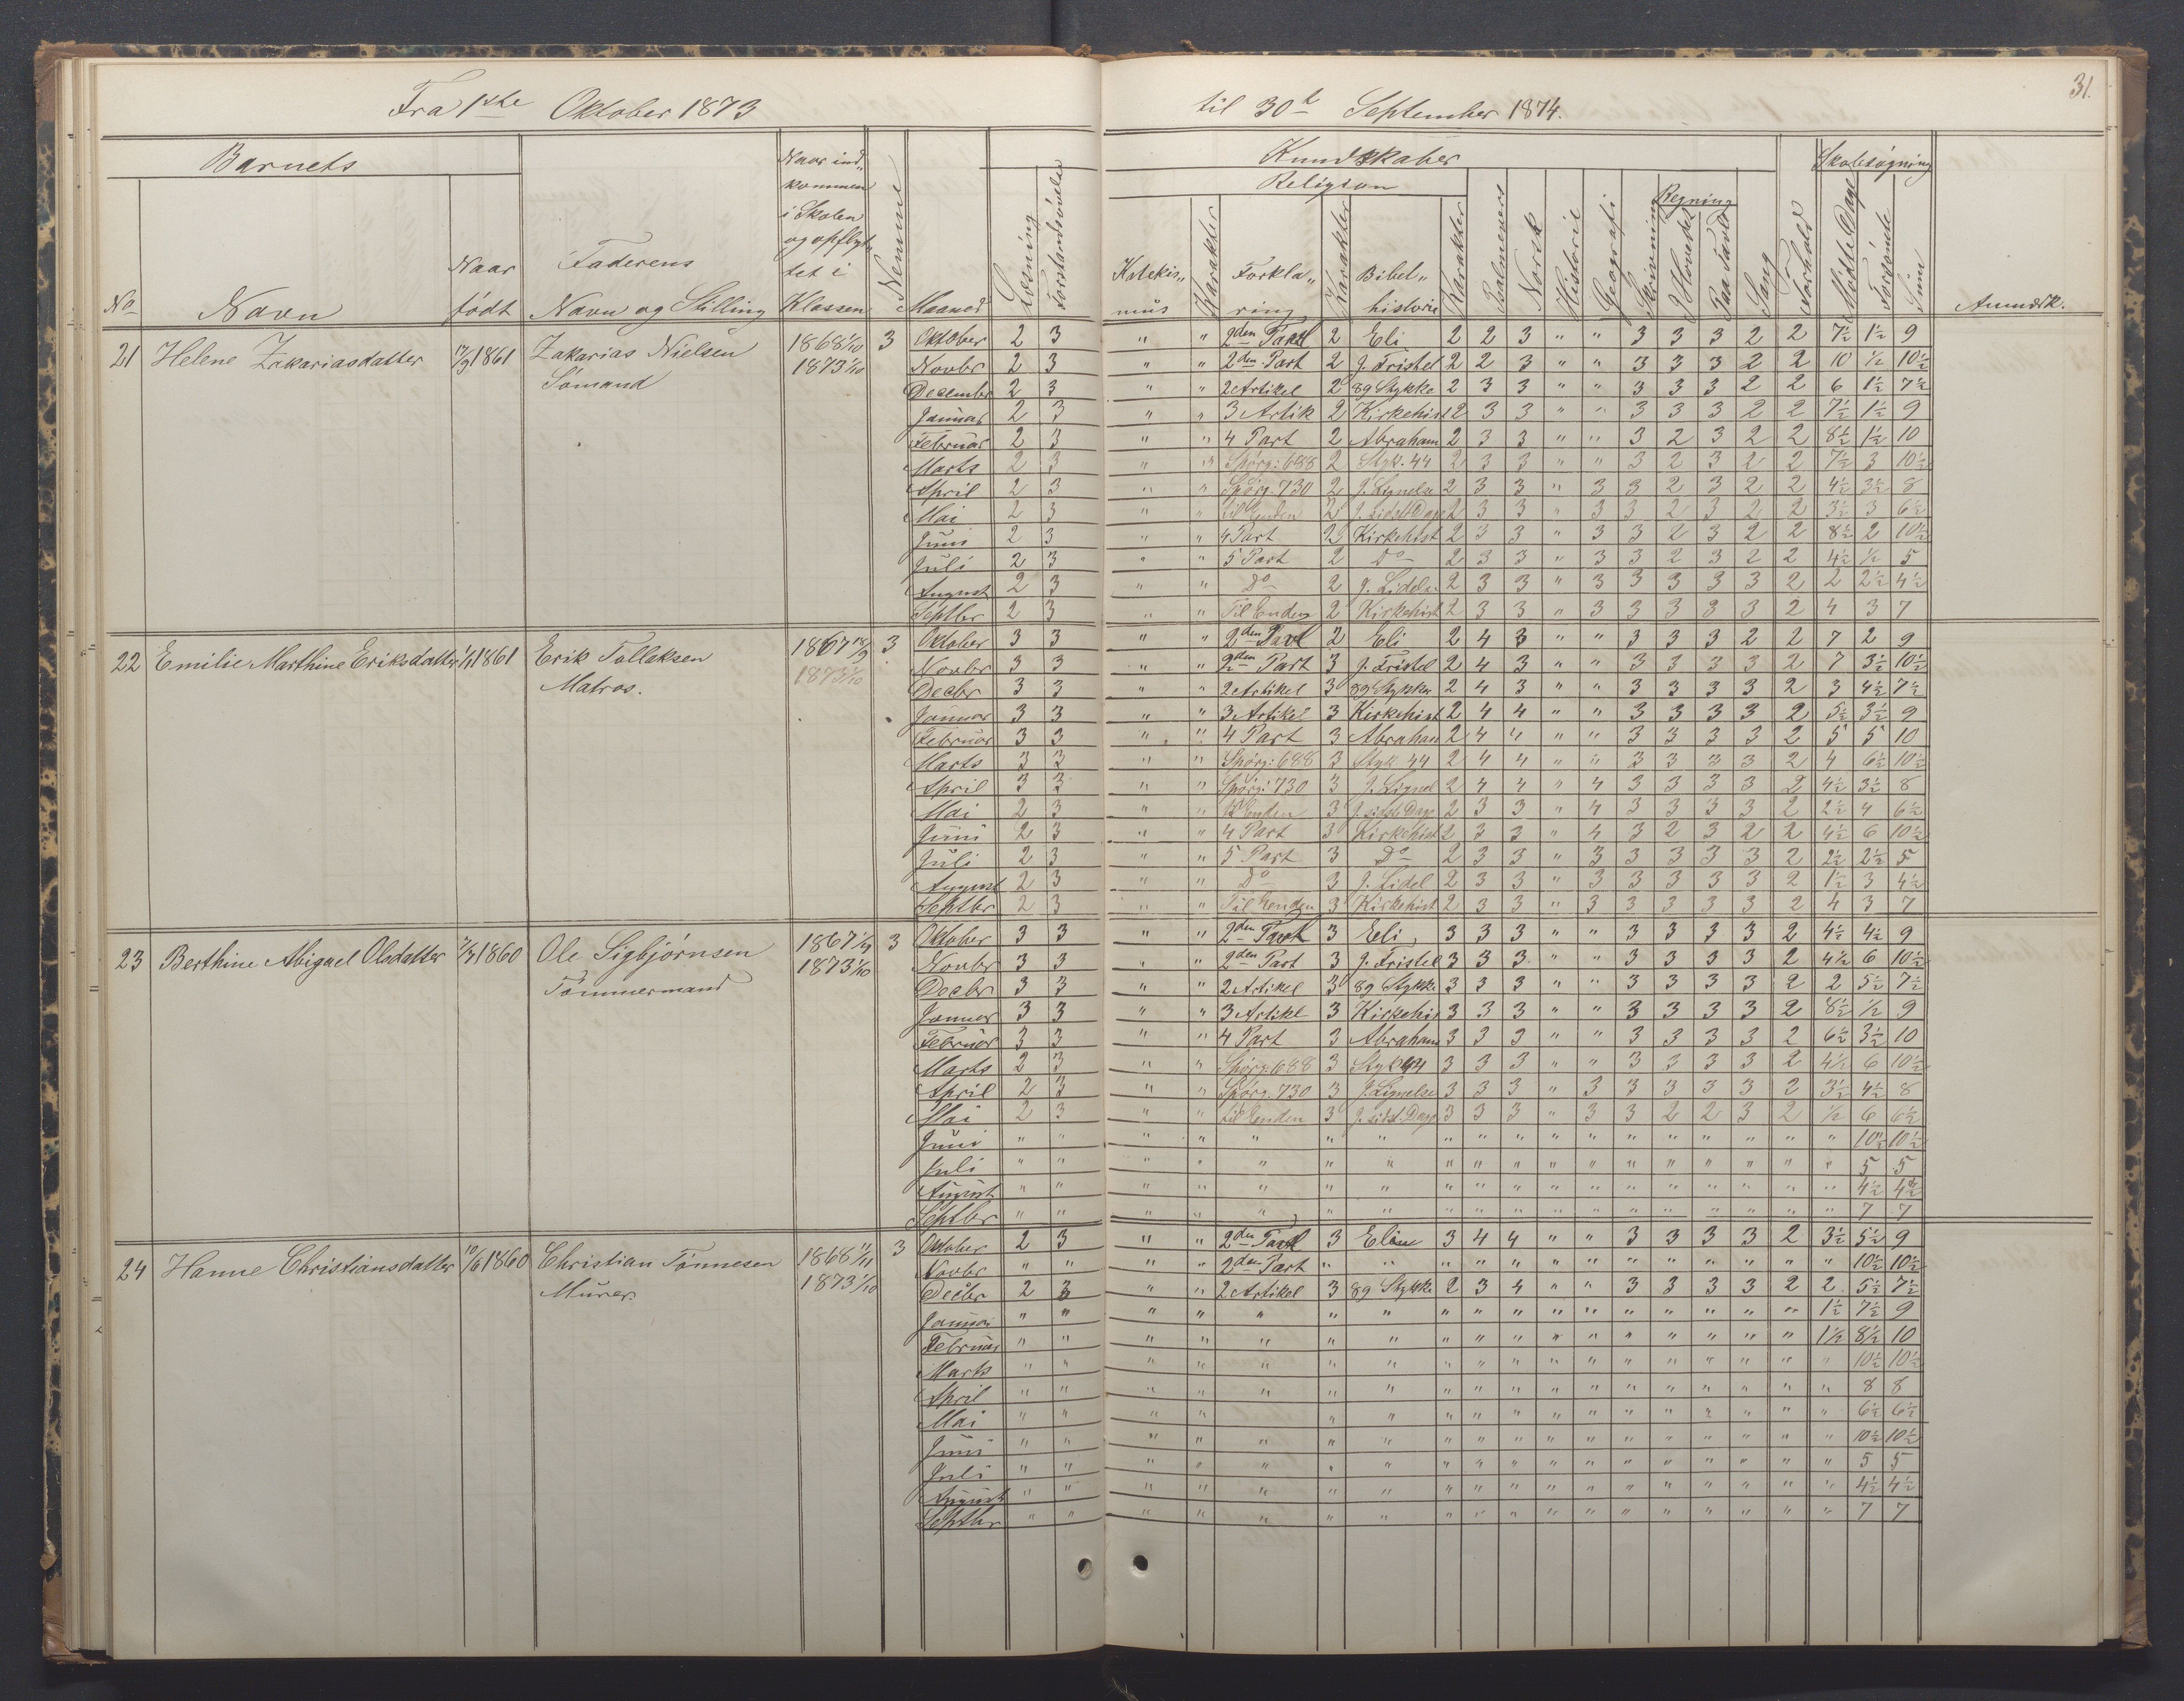 31.
Fra 1ste Oktober 1873 til 30te September 1874.
Barnets
No
Navn
Naar født
Faderens Navn og Stilling
Naar ind„ kommen i Skolen og opflyt„ tet i Klassen
Nemme
Maaned
Læsning
Forstandsøvelse
Kundskaber
Religion
Katekis„ mus
Karakter
Forkla„ ring
Karakter
Bibel„ historie
Karakter
Psalmevers
Norsk
Historie
Geografi
Skrivning
Regning
I Hovedet
Paa Tavle
Sang
Forhold
Skolesøgning
Mødte Dage
Forsømte
Sum
Anmærk.
21 Helene Zakariasdatter 1861 Zakarias Nielsen Sømand 1868 1/10 1873 1/10 3
Oktober 2 3 " " 2den Part 2 Eli 2 2 3 " " 3 3 3 2 2 7½ 1½ 9
Novbr 2 3 " " 2den Part 2 J. Fristel 2 2 3 " " 3 3 3 2 2 10 ½ 10½
Decembr 2 3 " " 2 Artikel 2 89 Stykke 2 3 3 " " 3 3 3 2 2 6 1½ 7½
Januar 2 3 " " 3 Artik 2 Kirkehist 2 3 3 " " 3 3 3 2 2 7½ 1½ 9
Februar 2 3 " " 4 Part 2 Abraham 2 3 3 " " 3 2 3 2 2 8½ 1½ 10
Marts 2 3 " " Spørg: 688 2 Styk. 44 2 3 3 " " 3 2 3 2 2 7½ 3 10½
April 2 3 " " Spørg. 730 2 J. Lignelse 2 3 3 " 3 3 2 3 2 2 4½ 3½ 8
Mai 2 3 " " til Enden 2 J. sidste Dage 2 3 3 " 3 3 2 3 2 2 3½ 3 6½
Juni 2 3 " " 4 Part 2 Kirkehist 2 3 3 " 3 3 2 3 2 2 8½ 2 10½
Juli 2 3 " " 5 Part 2 Do 2 3 3 " 3 3 2 3 2 2 4½ ½ 5
August 2 3 " " Do 2 J. Lidelse 2 3 3 " 3 3 3 3 3 2 2 2½ 4½
Septbr 2 3 " " Til Enden 2 Kirkehist 2 3 3 " 3 3 3 3 3 2 4 3 7
22 Emilie Marthine Eriksdatter 1861 Erik Tollaksen Matros. 1867 1873 1/10 3
Oktober 3 3 " " 2den Part 2 Eli 2 4 3 " " 3 3 3 2 2 7 2 9
Novbr 3 3 " " 2den Part 3 J. Fristel 2 4 3 " " 3 3 3 3 2 7 3½ 10½
Decbr 3 3 " " 2 Artikel 3 89 Stykke 2 4 3 " " 3 3 3 3 2 3 4½ 7½
Januar 3 3 " " 3 Artikel 3 Kirkehist 2 4 4 " " 3 3 3 3 2 5½ 3½ 9
Februar 3 3 " " 4 Part 3 Abraham 2 4 4 " " 3 3 3 3 2 5 5 10
Marts 3 3 " " Spørg: 688 3 Styk 44 2 4 4 " " 3 3 3 3 2 4 6½ 10½
April 3 3 " " Spørg: 730 3 J. Lignel 2 4 4 " 4 3 3 3 3 2 4½ 3½ 8
Mai 2 3 " " til Enden 3 J. sidste Dage 2 3 3 " 4 3 3 3 3 2 2½ 4 6½
Juni 2 3 " " 4 Part 3 Kirkehist 2 3 3 " 4 3 2 3 2 2 4½ 6 10½
Juli 2 3 " " 5 Part 3 Do 2 3 3 " 3 3 3 3 3 2 2½ 2½ 5
August 2 3 " " Do 3 J. Lidel 2 3 3 " 3 3 3 3 3 2 1½ 3 4½
Septbr 2 3 " " Til Enden 3 Kirkehist 2 3 3 " 3 3 3 3 3 2 4 3 7
23 Berthine Abigael Olsdatter 1860 Ole Sigbjørnsen Tømmermand 1867 1873 1/10 3
Oktober 3 3 " " 2den Part 3 Eli 3 3 3 " " 3 3 3 3 2 4½ 4½ 9
Novbr 3 3 " " 2den Part 3 J. Fristel 3 3 3 " " 3 3 3 3 2 4½ 6 10½
Decbr 3 3 " " 2 Artikel 3 89 Stykke 3 3 3 " " 3 3 3 3 2 2 5½ 7½
Januar 3 3 " " 3 Artikl 3 Kirkehis 3 3 3 " " 3 3 3 3 2 8½ ½ 9
Februar 3 3 " " 4 Part 3 Abraham 3 3 3 " " 3 3 3 3 2 6½ 3½ 10
Marts 2 3 " " Spørg: 688 3 Styk 44 3 3 3 " " 3 3 3 3 2 4½ 6 10½
April 2 3 " " Spørg. 730 3 J. Lignelse 3 3 3 " 3 3 3 3 3 2 3½ 4½ 8
Mai 2 3 " " til Enden 3 J. sidst. Dage 3 3 3 " 3 3 2 2 3 2 ½ 6 6½
Juni " " " " " " " " " " " " " " " " " " 10½ 10½
Juli " " " " " " " " " " " " " " " " " " 5 5
August " " " " " " " " " " " " " " " " " " 4½ 4½
Septbr " " " " " " " " " " " " " " " " " " 7 7
24 Hanne Christiansdatter 10/6 1860 Christian Tønnesen Murer. 1868 11/11 1873 1/10 3
Oktober 2 3 " " 2den Part 3 Eli 3 4 4 " " 3 3 3 3 2 3½ 5½ 9
Novbr " " " " 2den Part " " " " " " " " " " " " " 10½ 10½
Decbr 2 3 " " 2 Artikel 3 89 Stykke 2 3 4 " " 3 3 3 3 2 2 5½ 7½
Januar " " " " " " " " " " " " " " " " " 1½ 7½ 9
Februar " " " " " " " " " " " " " " " " " 1½ 8½ 10
Marts " " " " " " " " " " " " " " " " " " 10½ 10½
April " " " " " " " " " " " " " " " " " " 8 8
Mai " " " " " " " " " " " " " " " " " 6½ 6½
Juni " " " " " " " " " " " " " " " " " " 10½ 10½
Juli " " " " " " " " " " " " " " " " " " 5 5
August " " " " " " " " " " " " " " " " " " 4½ 4½
Septbr " " " " " " " " " " " " " " " " " " 7 7